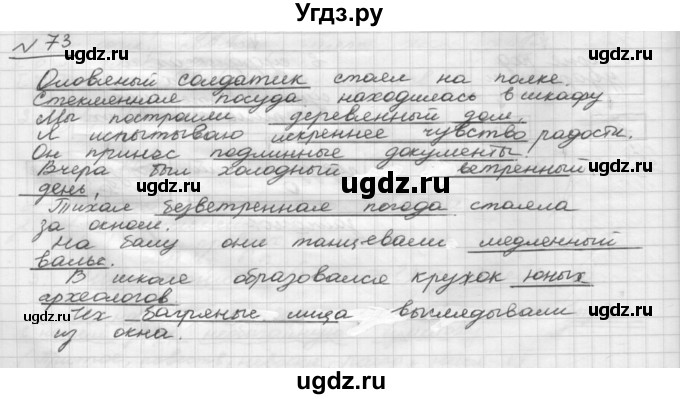 Угдз.ру
№ 73
Оловяный солдатик стоял на полке.
Стеклянная посуда находилась в шкафу
Мы построили деревянный дом.
Я испытываю искреннее чувство радости.
Он принес подлинные документы.
Вчера был холодный ветренный
день.
Тихая безветренная погода стояла
за окном.
На балу они танцевали медленный
вальс.
В школе образовался кружок юных
археологов
Их багряные лица выглядывали
из окна.
ugdz.ru
ugdz.ru
ugdz.ru
ugdz.ru
ugdz.ru
ugdz.ru
ugdz.ru
ugdz.ru
ugdz.ru
ugdz.ru
ugdz.ru
ugdz.ru